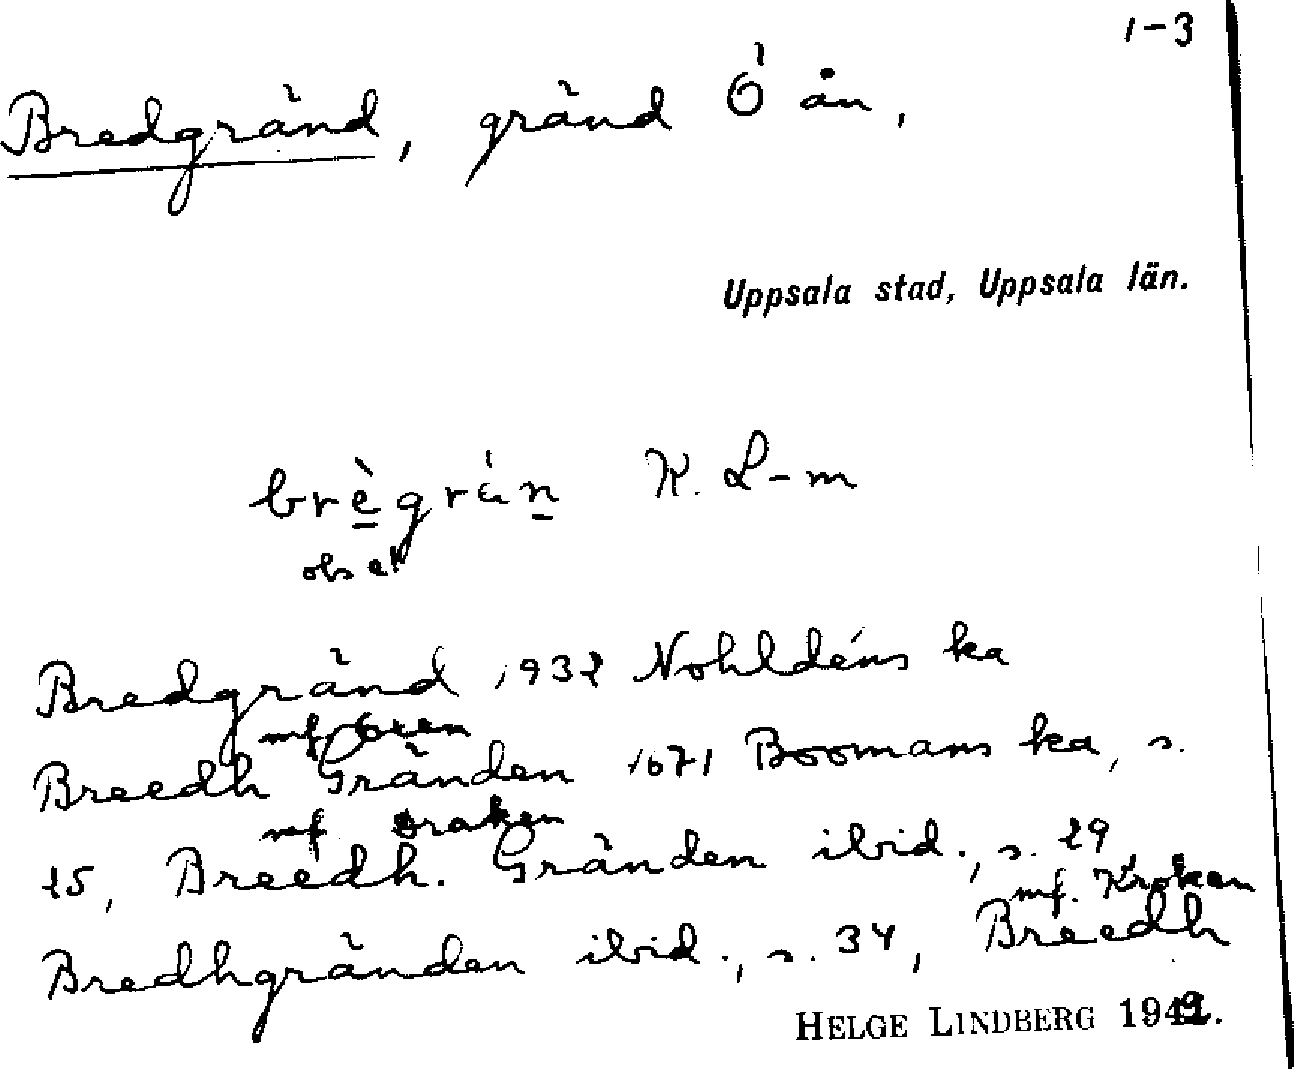 1-3
Bredgränd, gränd Ö ån,
Uppsala stad, Uppsala län.
brègrän K. L-m
obs e!
Bredgränd 1932 Nohldéns ka
mf. Oxen
Breedh Gränden 1671 Boomans ka, s.
mf Draken
25, Breedh. Gränden ibid., s. 29
mf. Kroken
Bredhgränden ibid., s. 34, Breedh
HELGE LINDBERG 1942.